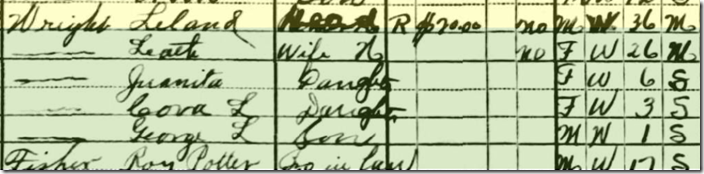 Wright Leland Head R $20.00 no M W 36 M
— Leath Wife H no F W 26 M
— Juanita Daughter F W 6 S
— Cova L Daughter F W 3 S
— George L Son M W 1 S
Fisher Roy Potter Bro in law M W 17 S